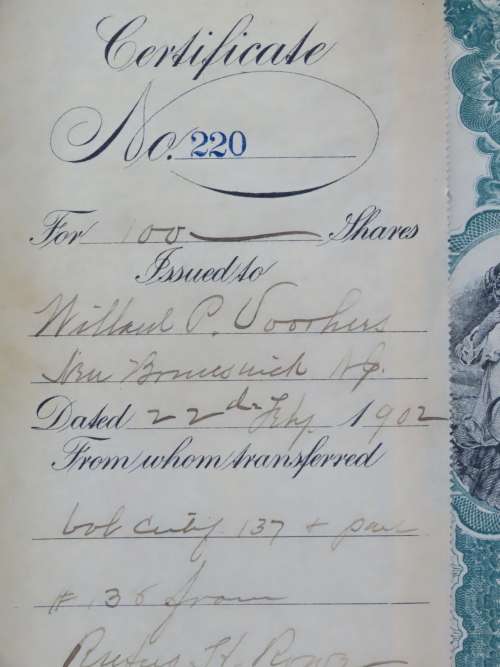 Certificate
No. 220
For 100 Shares
Issued to
Willard P. Voorhees
New Brunswick N.J.
Dated 22d Feby. 1902
From whom transferred
137 +
# 136 from
Rufus H.